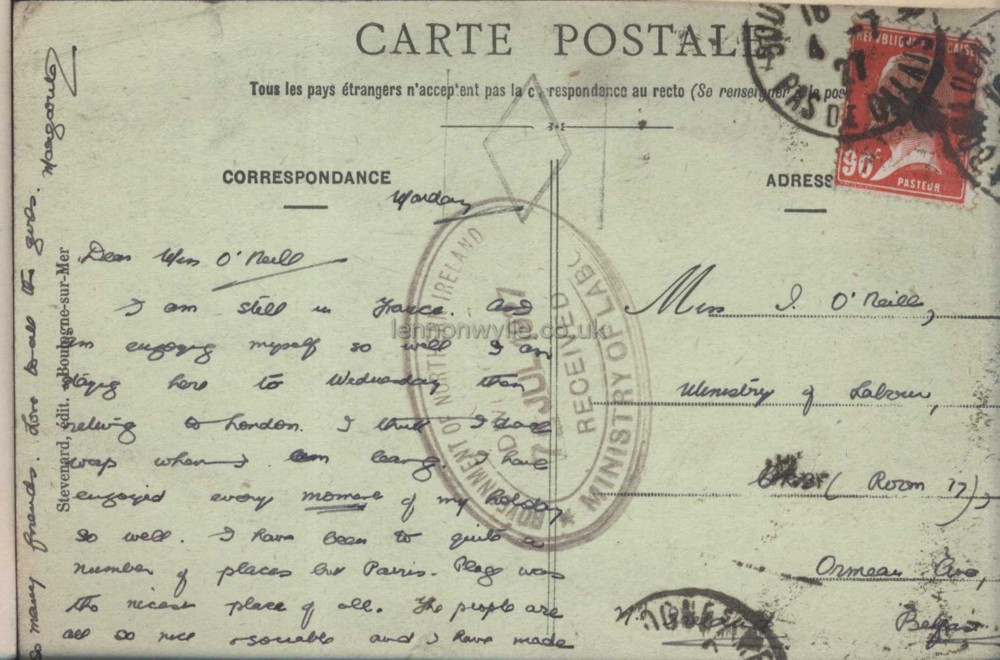 CARTE POSTALE
Tous les pays étrangers n'acceptent pas la correspondance au recto (Se renseigner à la pos
CORRESPONDANCE
ADRESS
Monday
Dear Miss O'Neill
I am still in France. And
am enjoying myself so well. I am
staying here to Wednesday then
to London. I I shall
weep when I am leaving. I have
enjoyed every moment of my holiday
so well. I have been to quite a
number of places but Paris. Plage was
the nicest place of all. The people are
all so nice sociable and I have made
so many friends. Love to all the girls. Margaret
Stevenard, édit. Boulogne-sur-Mer
Miss J. O'Neill,
Ministry of Labour,
(Room 17),
Ormeau Ave,
N. Ireland Belfast
REPUBLIQUE FRANCAISE
90c
PASTEUR
PAS DE CALAIS
GOVERNMENT OF NORTHERN IRELAND
MINISTRY OF LABOUR
RECEIVED
JUL
lennonwylie.co.uk